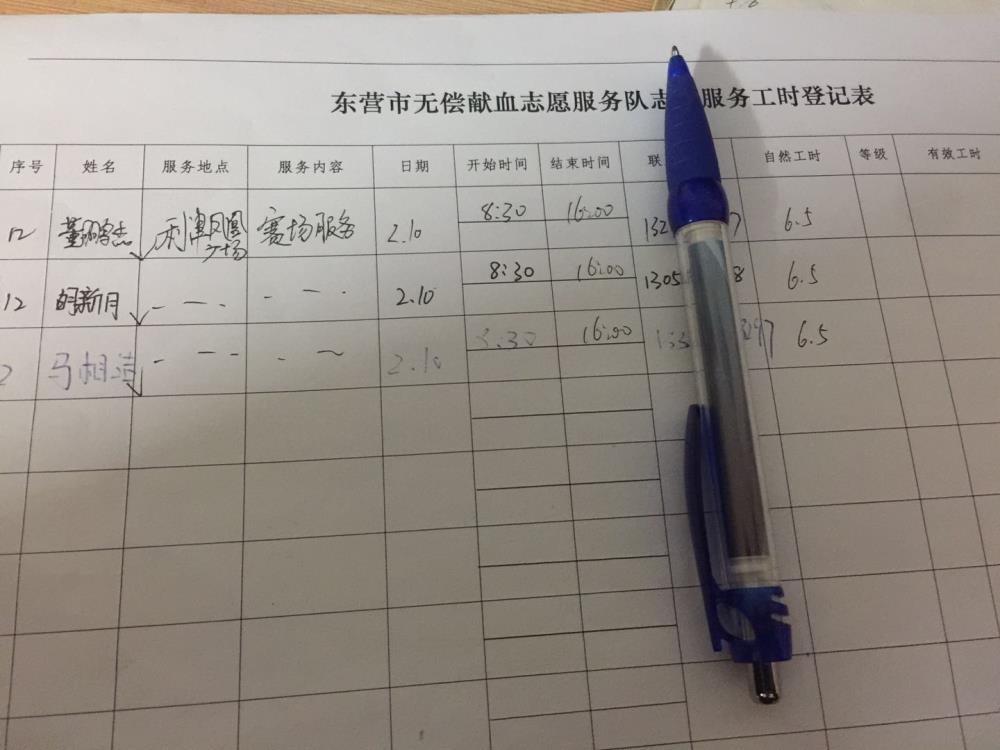 东营市无偿献血志愿服务队志 服务工时登记表
序号 姓名 服务地点 服务内容 日期 开始时间 结束时间 联 自然工时 等级 有效工时
12 董鹏杰 利津凤凰广场 赛场服务 2.10 8:30 16:00 132 7 6.5
12 胡新月 - - - . - - . 2.10 8:30 16:00 1305 8 6.5
2 马相 - - - . - ~ 2.10 8:30 16:00 133 397 6.5